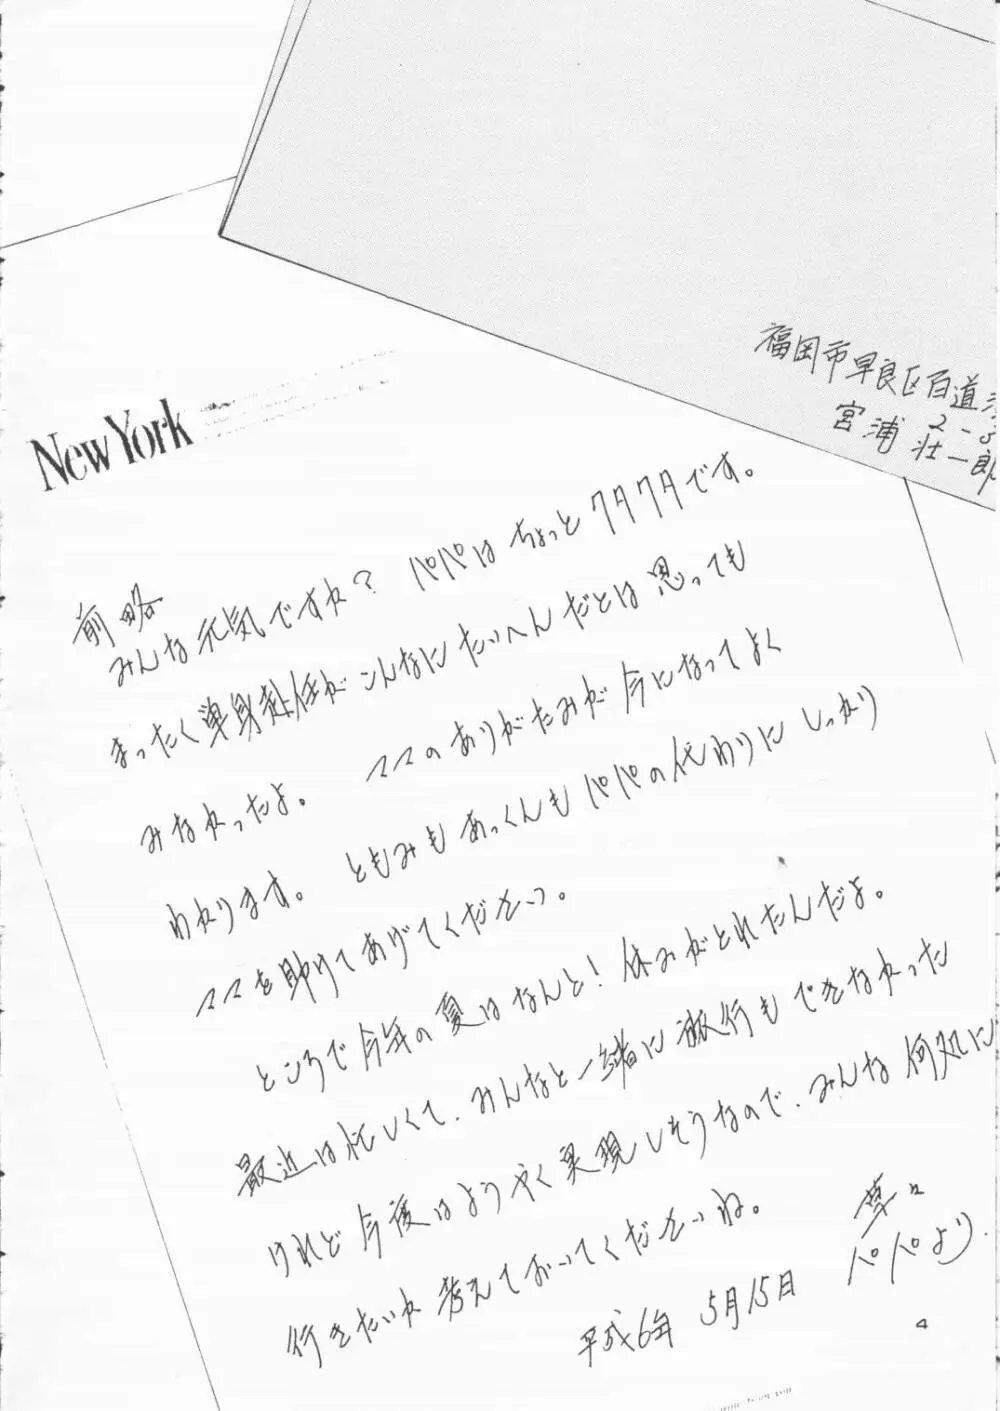 福岡市早良区百道
2-5
宮浦 壮一郎
New York
前略
みんな元気ですか? パパはちょっとクタクタです。
まったく単身赴任がこんなにたいへんだとは思っても
みなかったよ。 ママのありがたみが今になってよく
わかります。 ともみもあっくんもパパの代わりにしっかり
ママを助けてあげてくださいっ。
ところで今年の夏はなんと! 休みがとれたんだよ。
最近は忙しくて、みんなと一緒に旅行もできなかった
けれど今度はようやく実現しそうなので、みんな何処に
行きたいか考えておいてくださいね。
草々
パパより.
平成6年 5月15日
4